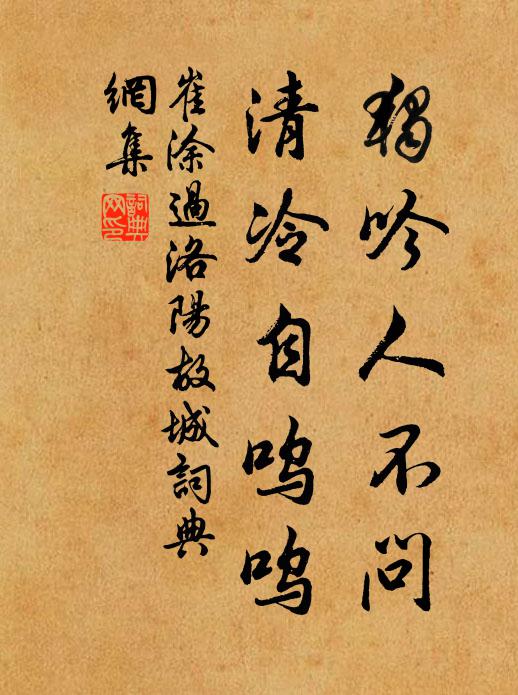 獨吟人不問
清冷自嗚嗚
崔涂過洛陽故城詞典
網集
詞典
网印